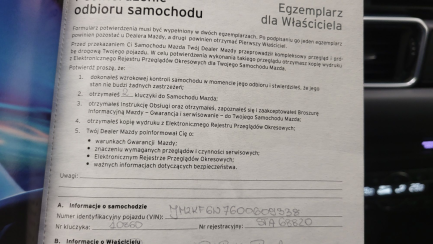 odbioru samochodu
Egzemplarz
dla Właściciela
Formularz potwierdzenia musi być wypełniony w dwóch egzemplarzach. Po podpisaniu go jeden egzemplarz
powinien pozostać u Dealera Mazdy, a drugi powinien otrzymać Pierwszy Właściciel.
Przed przekazaniem Ci Samochodu Mazda Twój Dealer Mazdy przeprowadził kompleksowy przegląd i
drogową Twojego pojazdu. W celu potwierdzenia wykonania takiego przeglądu otrzymasz kopię wydruku
z Elektronicznego Rejestru Przeglądów Okresowych dla Twojego Samochodu Mazda.
Potwierdź proszę, że:
1. dokonałeś wzrokowej kontroli samochodu w momencie jego odbioru i stwierdziłeś, że jego
stan nie budzi żadnych zastrzeżeń;
2. otrzymałeś kluczyki do Samochodu Mazda;
3. otrzymałeś Instrukcję Obsługi oraz otrzymałeś, zapoznałeś się i zaakceptowałeś Broszurę
Informacyjną Mazdy – Gwarancja i serwisowanie – do Twojego Samochodu Mazda;
4. otrzymałeś kopię wydruku z Elektronicznego Rejestru Przeglądów Okresowych;
5. Twój Dealer Mazdy poinformował Cię o:
• warunkach Gwarancji Mazdy;
• znaczeniu wymaganych przeglądów i czynności serwisowych;
• Elektronicznym Rejestrze Przeglądów Okresowych;
• ważnych informacjach dotyczących bezpieczeństwa.
Uwagi:
A. Informacje o samochodzie
Numer identyfikacyjny pojazdu (VIN):
Nr kluczyka: Nr rejestracyjny:
B. Informacje o Właścicielu